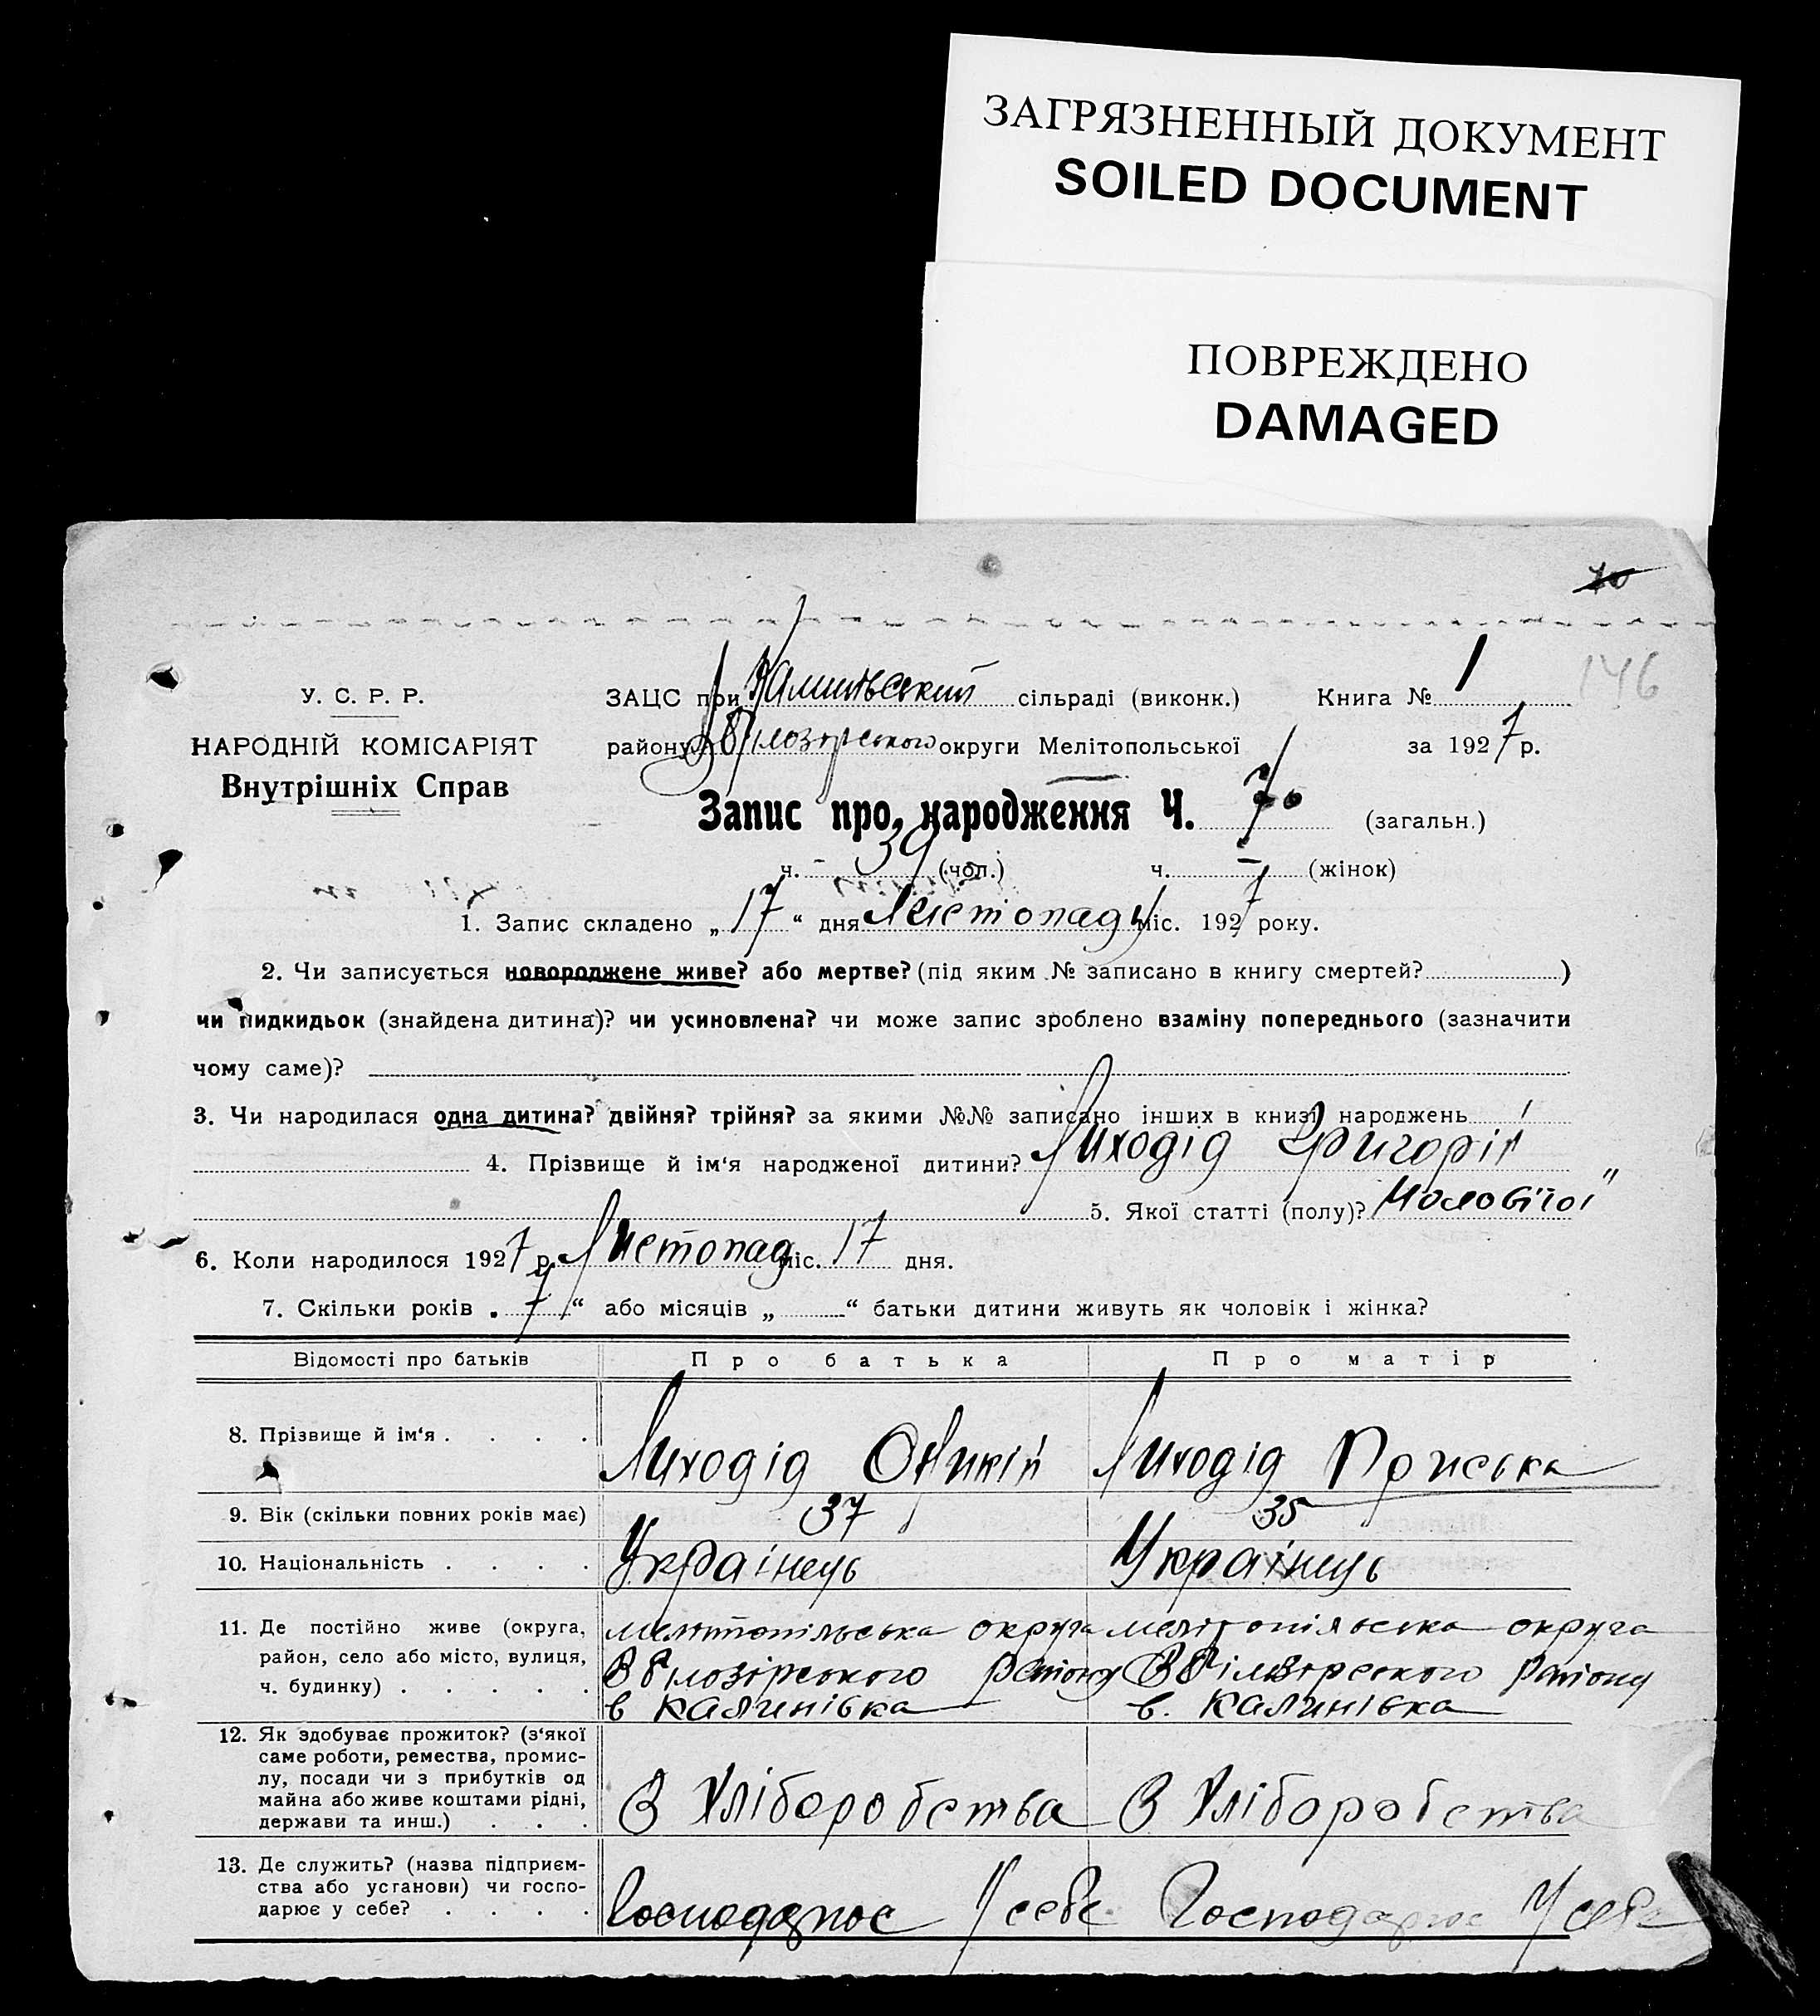 ЗАГРЯЗНЕННЫЙ ДОКУМЕНТ
SOILED DOCUMENT
ПОВРЕЖДЕНО
DAMAGED
70
146
У. С. Р. Р.
НАРОДНІЙ КОМІСАРІЯТ
Внутрішніх Справ
ЗАЦС при сільраді (виконк.) Книга № 1
району округи Мелітопольської за 1927 р.
Запис про народження Ч. 70 (загальн.)
ч. 39 (чол.) ч. – (жінок)
1. Запис складено „17“ дня Листопаду міс. 1927 року.
2. Чи записується новороджене живе? або мертве? (під яким № записано в книгу смертей? )
чи пидкидьок (знайдена дитина)? чи усиновлена? чи може запис зроблено взаміну попереднього (зазначити
чому саме)?
3. Чи народилася одна дитина? двійня? трійня? за якими №№ записано інших в книзі народжень
4. Прізвище й ім‘я народженої дитини? Лиходід Григорій
5. Якої статті (полу)?
6. Коли народилося 1927 р. Листопад міс. 17 дня.
7. Скільки років „7“ або місяців „ “ батьки дитини живуть як чоловік і жінка?
Відомості про батьків Про батька Про матір
8. Прізвище й ім‘я . . . . Лиходід Лиходід Приська
9. Вік (скільки повних років має) 37 35
10. Національність . . . . Українець Українець
11. Де постійно живе (округа, район, село або місто, вулиця, ч. будинку) . . . . .
мелітопільська округа мелітопільська округа
В Білозірського району В Білозірського району
в Калинівка в. Калинівка
12. Як здобуває прожиток? (з‘якої саме роботи, ремества, промислу, посади чи з прибутків од майна або живе коштами рідні, держави та инш.) . . .
З Хліборобства З Хліборобства
13. Де служить? (назва підприємства або установи) чи господарює у себе? . . . .
Господарює У себе Господарює У себе